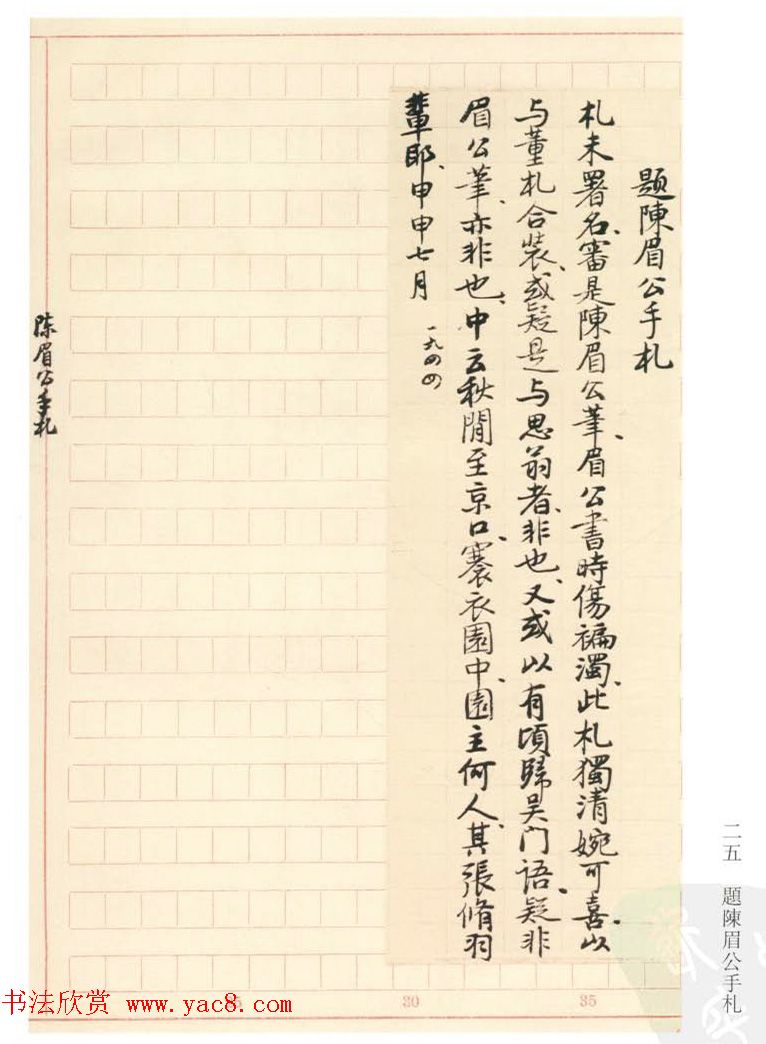 題陳眉公手札
札未署名、審是陳眉公筆、眉公書時傷褊濁、此札獨清婉可喜、以
与董札合裝、或疑是与思翁者、非也、又或以有頃歸吴门語、疑非
眉公筆、亦非也、中云秋間至京口、褰衣園中、園主何人、其張脩羽
輩耶、申申七月
一九四四
陈眉公手札
二五 題陳眉公手札
30
35
书法欣赏 www.yac8.com